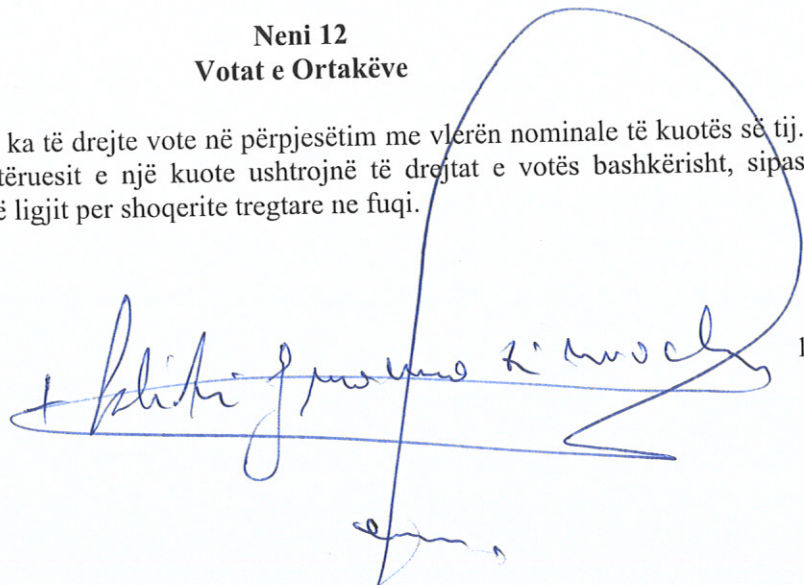 Neni 12
Votat e Ortakëve
ka të drejte vote në përpjesëtim me vlerën nominale të kuotës së tij.
tëruesit e një kuote ushtrojnë të drejtat e votës bashkërisht, sipas
ë ligjit per shoqerite tregtare ne fuqi.
1